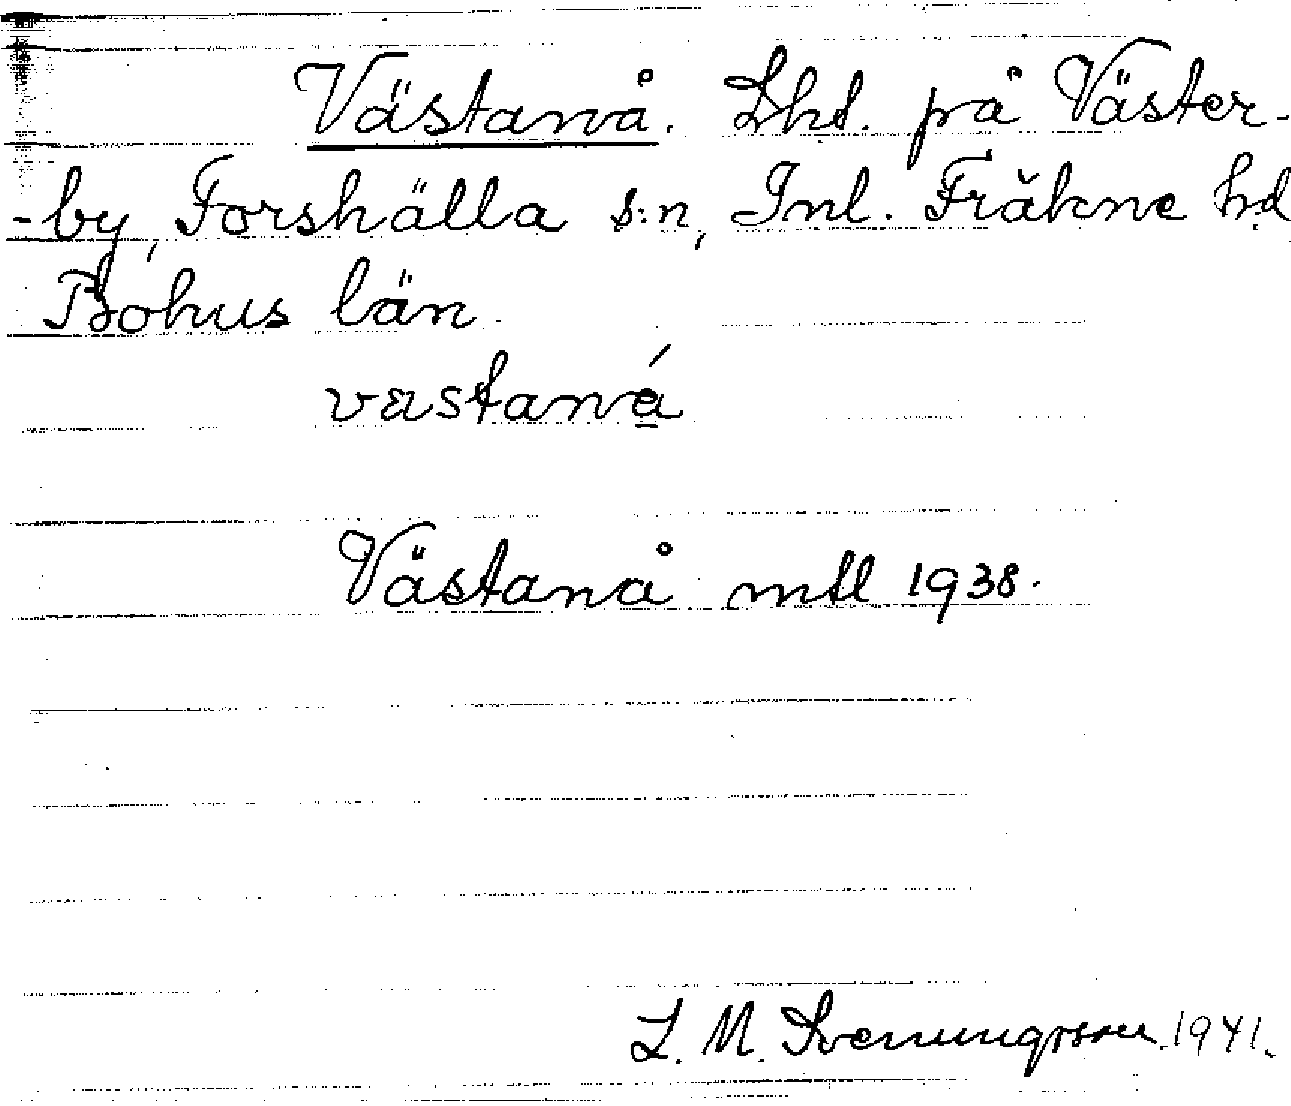 Västanå. Lht. på Väster-
-by, Forshälla s:n, Inl. Fräkne hd
Bohus län.
västaná
Västanå mtl 1938.
L. M. Svenungsson 1941.